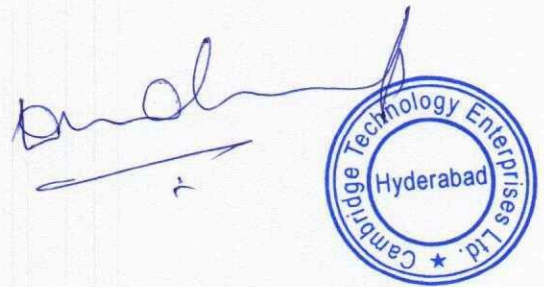 Cambridge Technology Enterprises Ltd. ★
Hyderabad